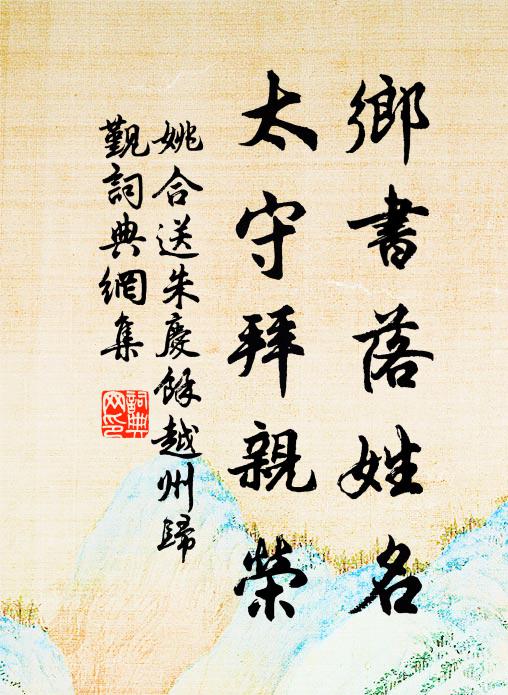 鄉書落姓名
太守拜親榮
姚合送朱慶餘越州歸
覲詞典網集
詞典
网印